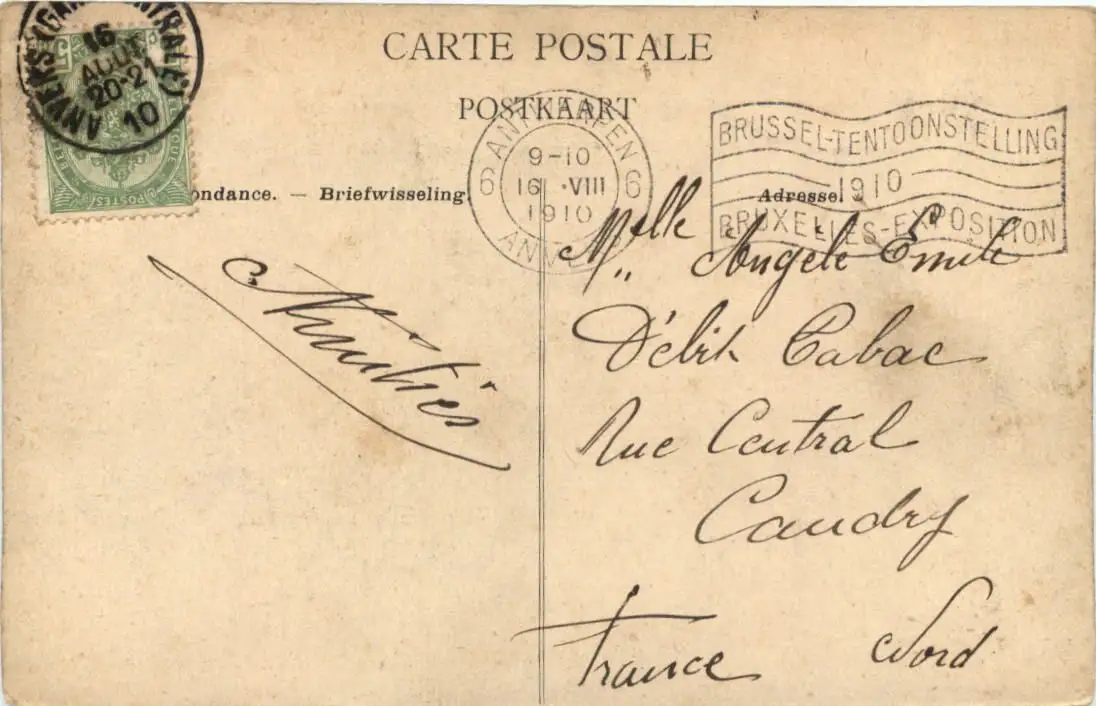 CARTE POSTALE
POSTKAART
ANVERS (GARE CENTRALE)
16
AOUT
20-21
10
POSTES
ANTWERPEN
6 9-10 6
16 VIII
1910
ANVERS
BRUSSEL-TENTOONSTELLING
1910
BRUXELLES-EXPOSITION
ondance. — Briefwisseling.
Adresse.
Melle Angèle Emile
Débit Tabac
Rue Central
Caudry
France Nord
Amitiés